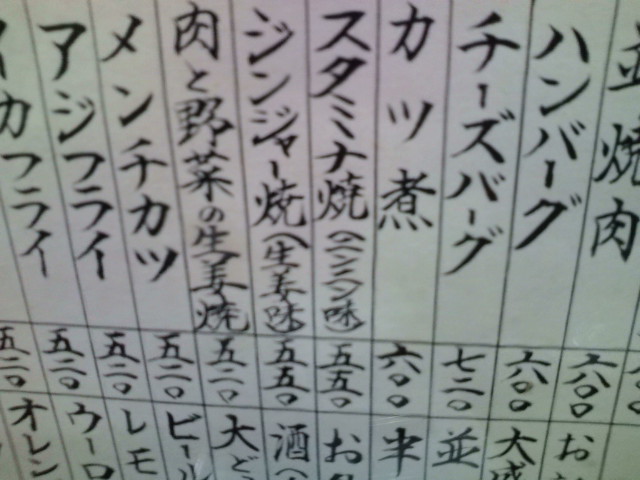 並焼肉 六〇〇
ハンバーグ 六〇〇
チーズバーグ 七二〇
カツ煮 六〇〇
スタミナ焼(ニンニク味) 五五〇
ジンジャー焼(生姜味) 五五〇
肉と野菜の生姜焼 五二〇
メンチカツ 五二〇
アジフライ 五二〇
イカフライ 五二〇
五二〇
お
大盛
並
半
お
酒(
大ど
ビール
レモ
ウーロ
オレン